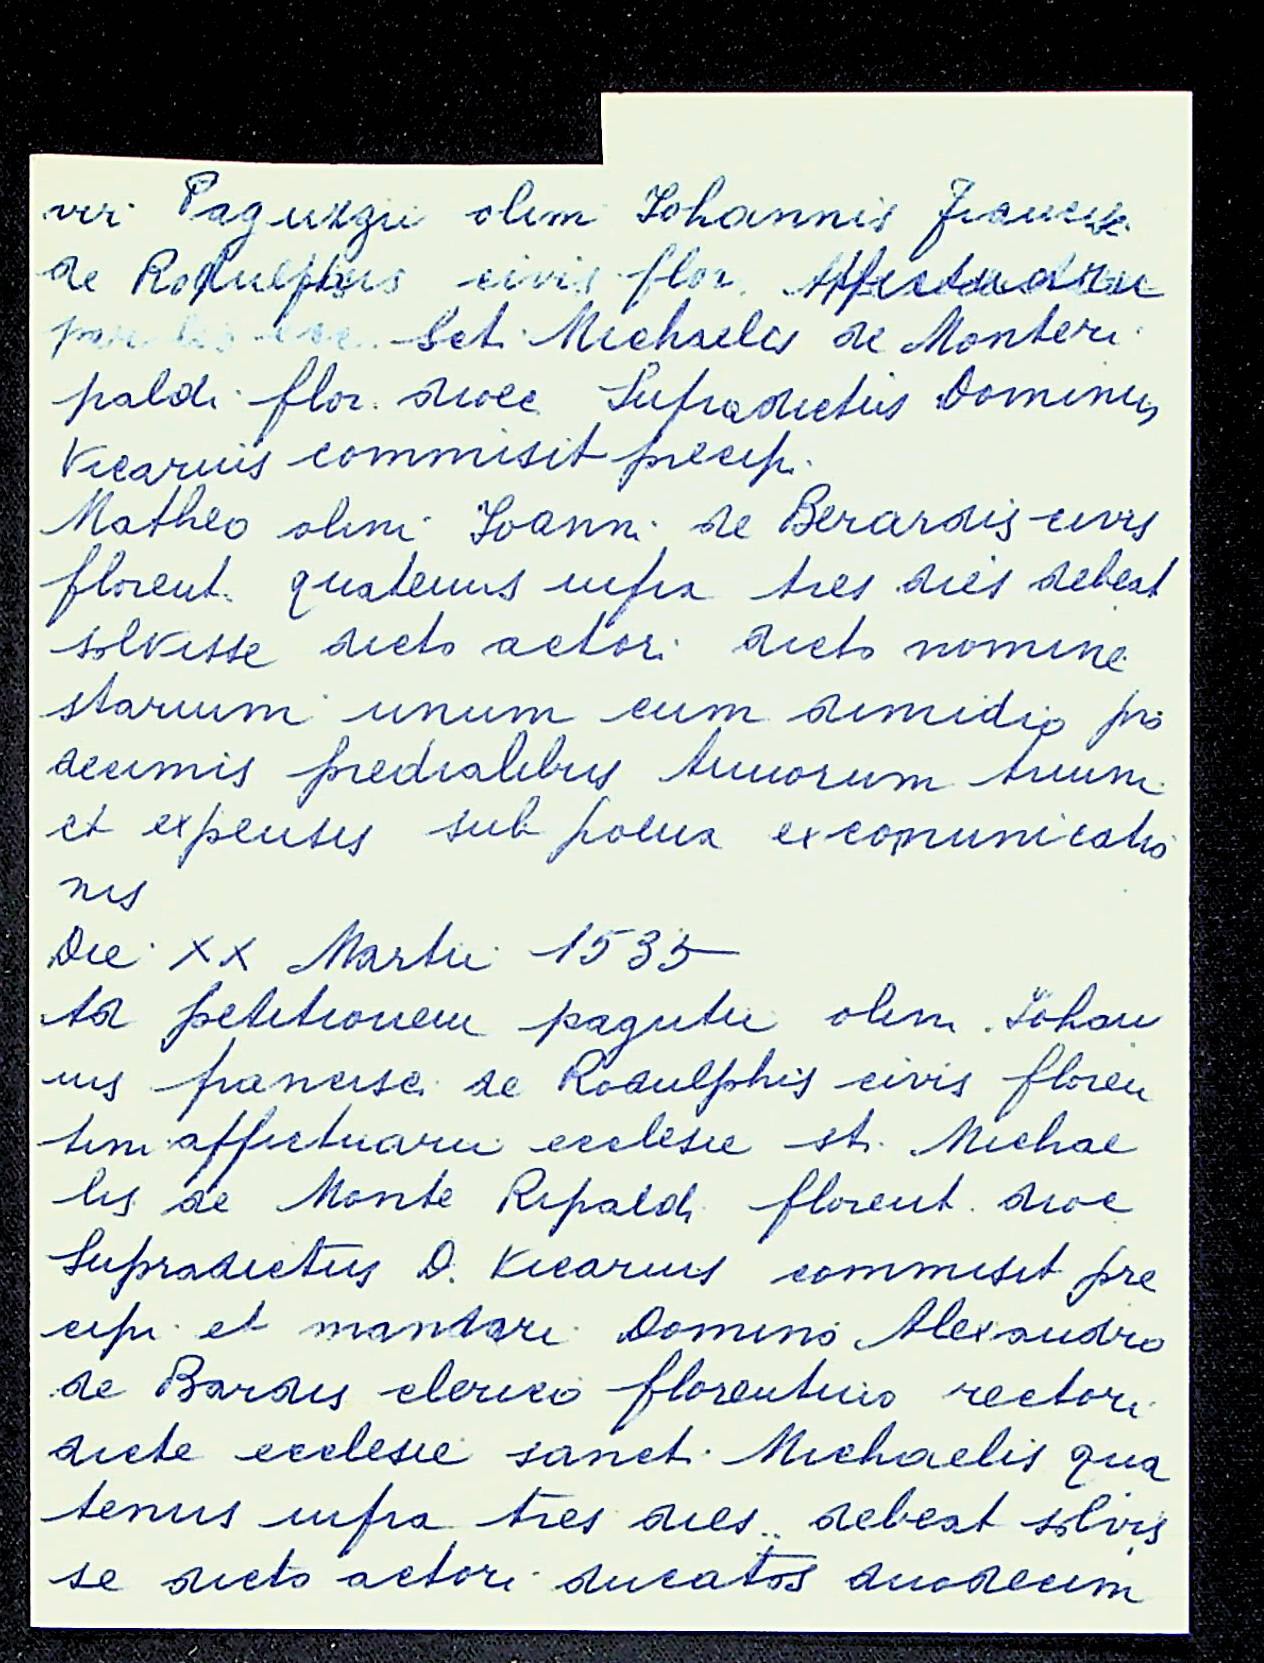 viri Paguzgii olim Iohannis Francisci
de Rodulphis civis flor. Affictuarii
Sct. Michaelis de Monteri
paldi flor. dioec Supradictus Dominus
Vicarius commisit precip.
Matheo olim Ioann. de Berardis civis
florent. quatenus infra tres dies debeat
solvisse dicto actori dicto nomine
starium unum cum dimidio pro
decimis predialibus annorum trium
et expensis sub poena excomunicatio
nis
Die XX Martii 1535
Ad petitionem pagutii olim Iohan
nis francisci de Rodulphis civis floren
tini affictuarii ecclesie st. Michae
lis de Monte Ripaldi florent. dioc
Supradictus D. Vicarius commisit pre
cipi et mandari Domino Alexandro
de Bardis clerico florentino rectori
dicte ecclesie sancti Michaelis qua
tenus infra tres dies debeat solvis
se dicto actori ducatos duodecim